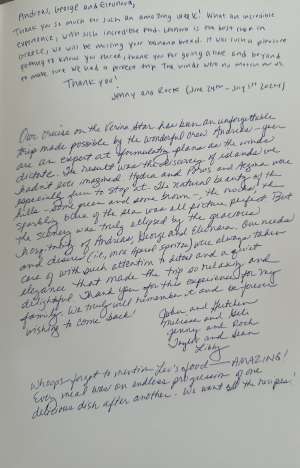 Andreas, George and Eleonora,
Thank you so much for such an amazing week! What an incredible
experience, with such incredible food. Leonora is the best chef in
Greece, we will be missing your banana bread. It was such a pleasure
getting to know you three, thank you for going above and beyond
to make sure we had a perfect trip. The winds were no match for us.
Thank you!
Jenny and Rock (June 24th - July 1st 2024)
Our cruise on the Verina Star has been an unforgettable
trip made possible by the wonderful crew. Andreas - you
are an expert at formulating plans as the winds
dictate. The result was the discovery of islands we
hadn't imagined. Hydra and Poros and Aegina were
especially fun to stop at. The natural beauty of the
hills - some green and some brown - the rocks, the
sparkly blue of the sea was all picture perfect. But
the scenery was truly eclipsed by the gracious
hospitality of Andreas, George and Eleonora. Our needs
and desires (i.e., more Aperol spritzes) were always taken
care of with such attention to detail and a quiet
elegance that made the trip so relaxing and
delightful. Thank you for this experience for my
family. We truly will remember it and be forever
wishing to come back!
John and
Melissa and
Jenny and Rock
Taylor and Sean
Libby
Whoops forgot to mention Leo's food - AMAZING!
Every meal was an endless progression of one
delicious dish after another. We want all the recipes!